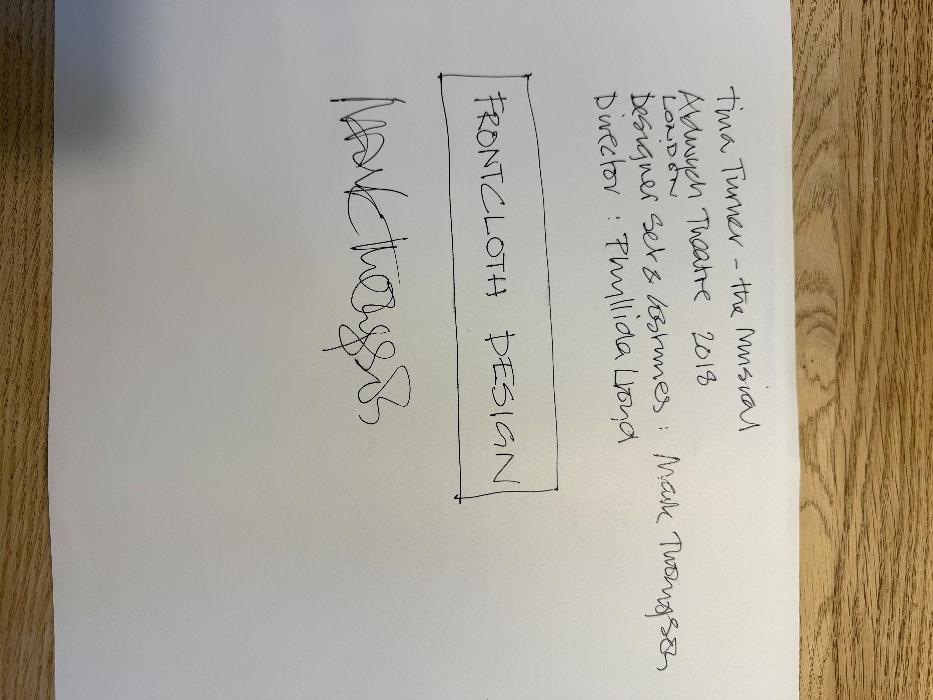 Tina Turner - the Musical
Aldwych Theatre 2018
LONDON
Designer Set & Costumes : Mark Thompson
Director : Phyllida Lloyd
FRONTCLOTH DESIGN
Mark Thompson